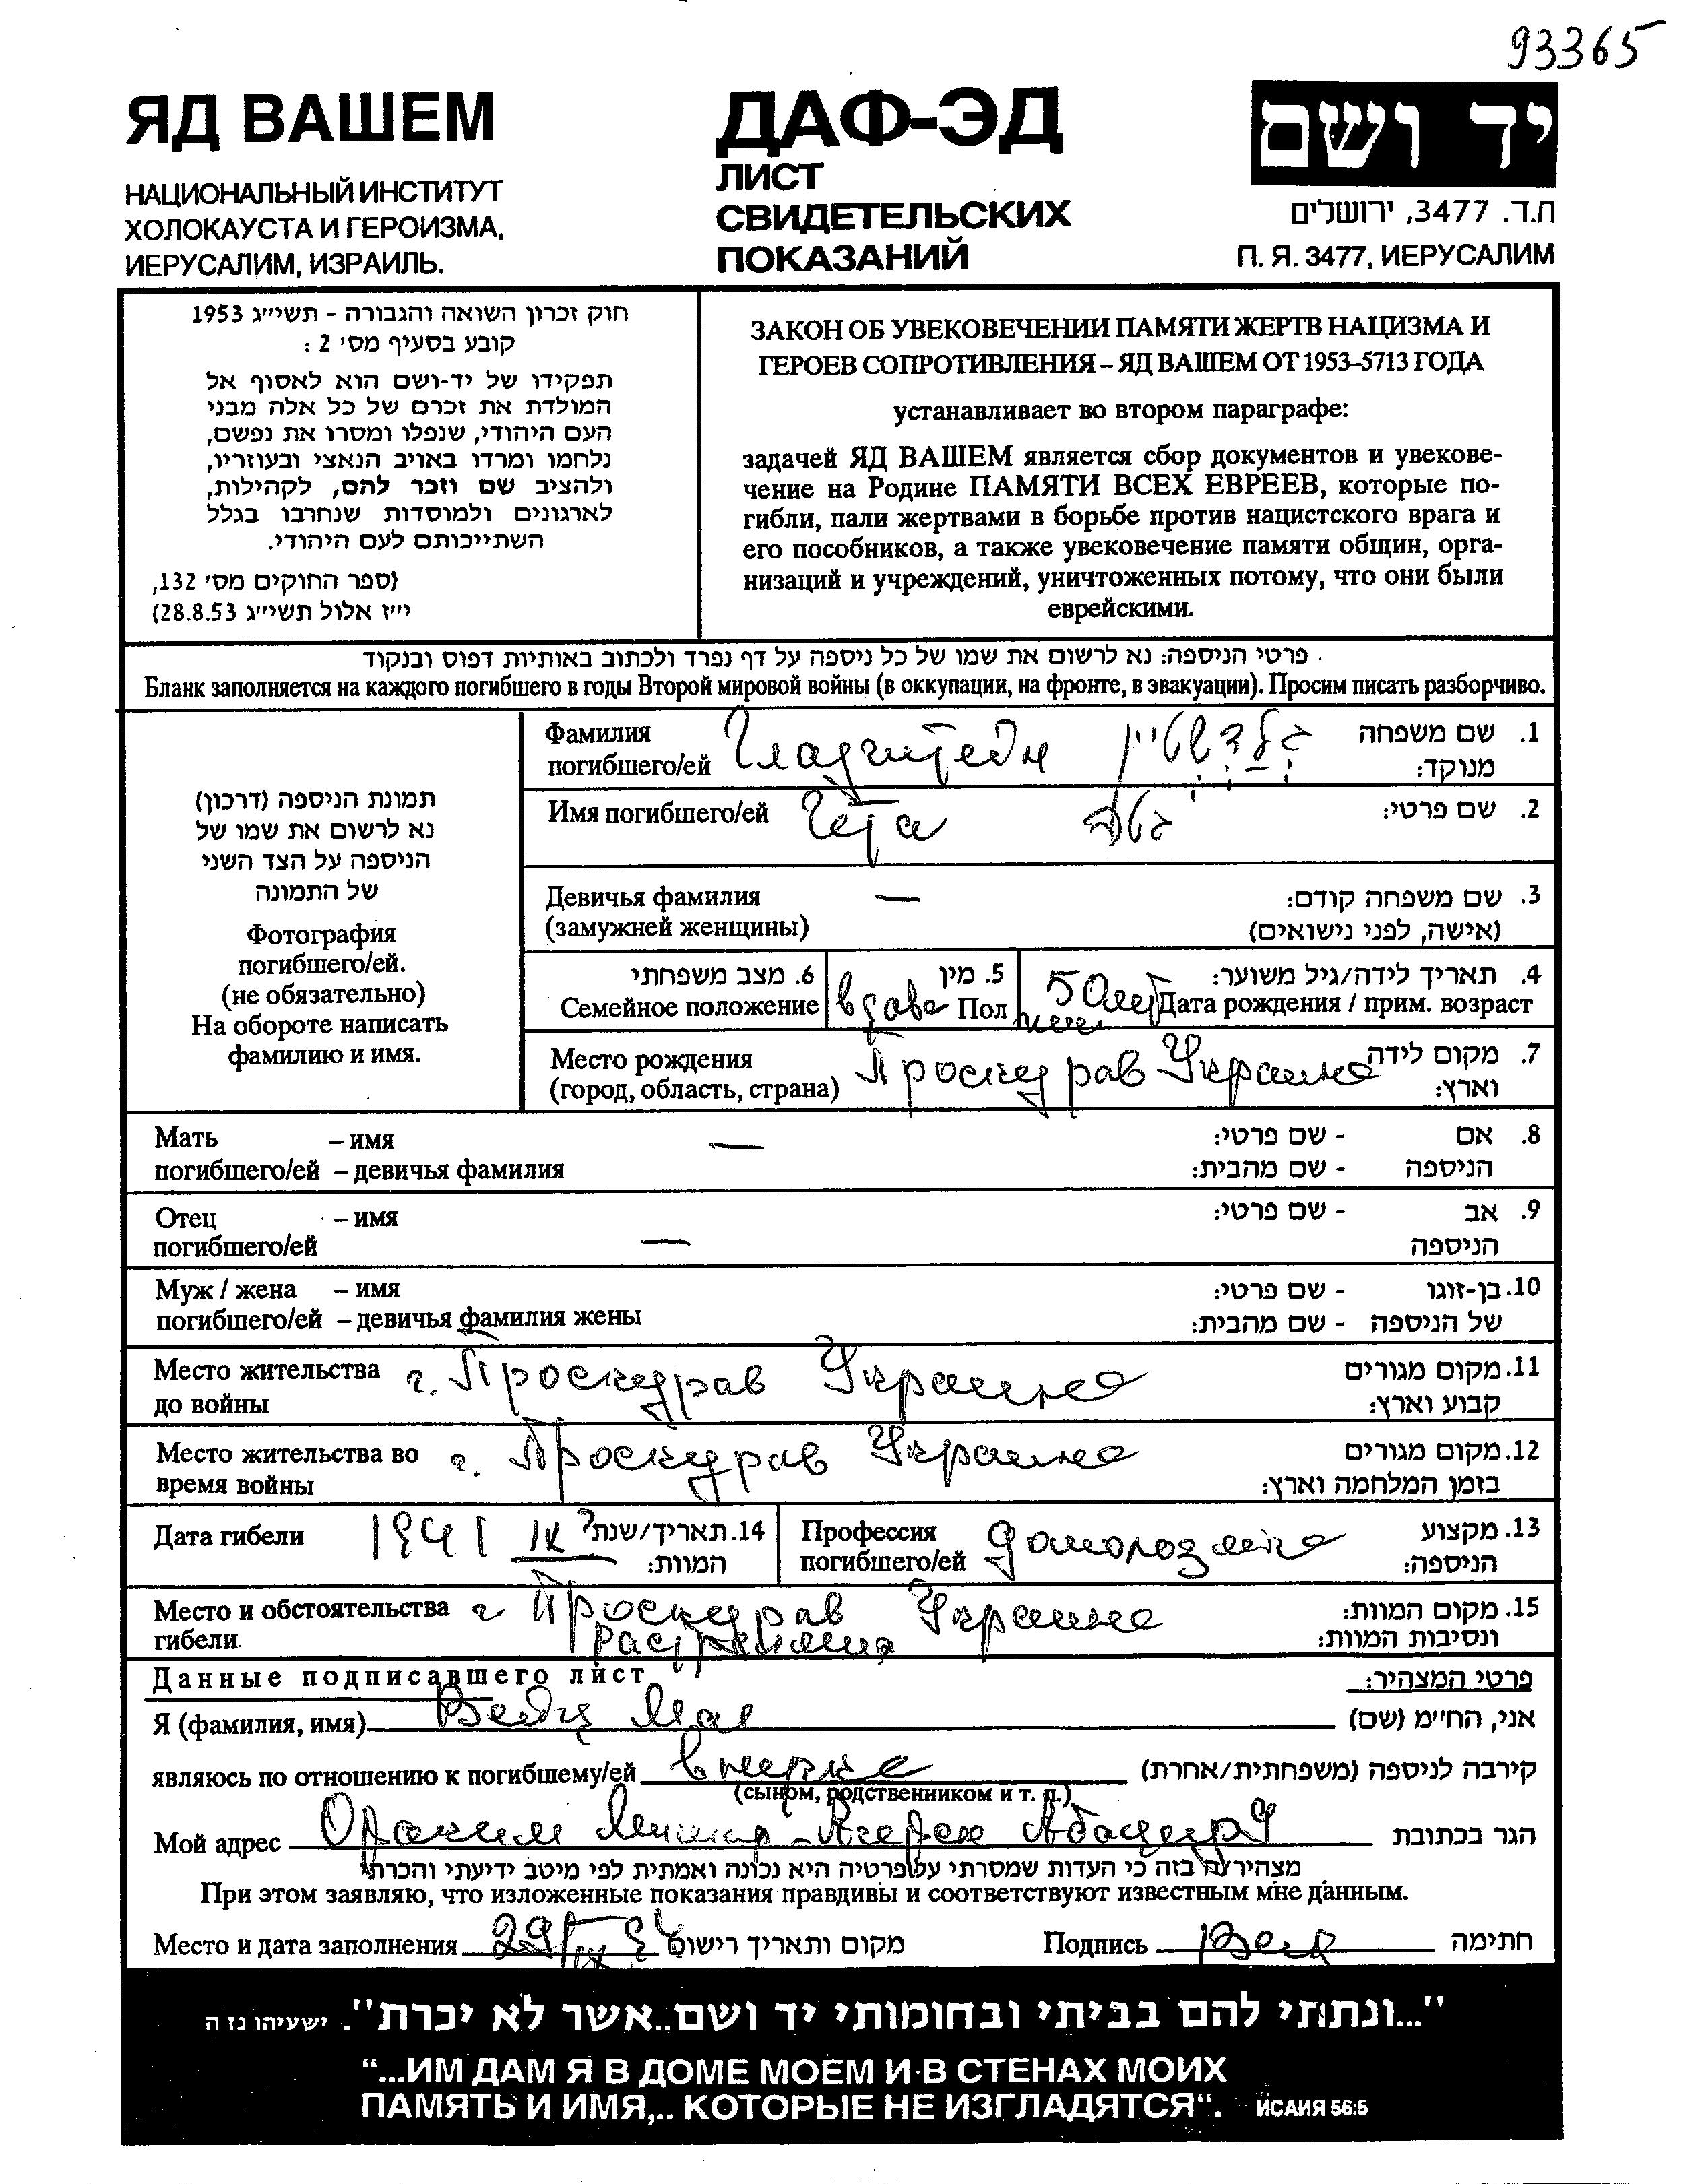 93365
ЯД ВАШЕМ
НАЦИОНАЛЬНЫЙ ИНСТИТУТ
ХОЛОКАУСТА И ГЕРОИЗМА,
ИЕРУСАЛИМ, ИЗРАИЛЬ.
ДАФ-ЭД
ЛИСТ
СВИДЕТЕЛЬСКИХ
ПОКАЗАНИЙ
יד ושם
ת.ד. 3477, ירושלים
П. Я. 3477, ИЕРУСАЛИМ
חוק זכרון השואה והגבורה - תשי״ג 1953
קובע בסעיף מס׳ 2 :
תפקידו של יד-ושם הוא לאסוף אל
המולדת את זכרם של כל אלה מבני
העם היהודי, שנפלו ומסרו את נפשם,
נלחמו ומרדו באויב הנאצי ובעוזריו,
ולהציב שם וזכר להם, לקהילות,
לארגונים ולמוסדות שנחרבו בגלל
השתייכותם לעם היהודי.
(ספר החוקים מס׳ 132,
י״ז אלול תשי״ג 28.8.53)
ЗАКОН ОБ УВЕКОВЕЧЕНИИ ПАМЯТИ ЖЕРТВ НАЦИЗМА И
ГЕРОЕВ СОПРОТИВЛЕНИЯ – ЯД ВАШЕМ ОТ 1953–5713 ГОДА
устанавливает во втором параграфе:
задачей ЯД ВАШЕМ является сбор документов и увекове-
чение на Родине ПАМЯТИ ВСЕХ ЕВРЕЕВ, которые по-
гибли, пали жертвами в борьбе против нацистского врага и
его пособников, а также увековечение памяти общин, орга-
низаций и учреждений, уничтоженных потому, что они были
еврейскими.
פרטי הניספה: נא לרשום את שמו של כל ניספה על דף נפרד ולכתוב באותיות דפוס ובנקוד
Бланк заполняется на каждого погибшего в годы Второй мировой войны (в оккупации, на фронте, в эвакуации). Просим писать разборчиво.
תמונת הניספה (דרכון)
נא לרשום את שמו של
הניספה על הצד השני
של התמונה
Фотография
погибшего/ей.
(не обязательно)
На обороте написать
фамилию и имя.
Фамилия
погибшего/ей Гладштейн גלדשטיין 1. שם משפחה
מנוקד:
Имя погибшего/ей Гета גטה 2. שם פרטי:
Девичья фамилия — 3. שם משפחה קודם:
(замужней женщины) (אישה, לפני נישואים)
6. מצב משפחתי 5. מין 4. תאריך לידה/גיל משוער:
Семейное положение вдова Пол жен 50 лет Дата рождения / прим. возраст
Место рождения 7. מקום לידה
(город, область, страна) Проскуров Украина וארץ:
Мать – имя — - שם פרטי: 8. אם
погибшего/ей – девичья фамилия - שם מהבית: הניספה
Отец – имя - שם פרטי: 9. אב
погибшего/ей — הניספה
Муж / жена – имя - שם פרטי: 10. בן-זוגו
погибшего/ей – девичья фамилия жены - שם מהבית: של הניספה
Место жительства г. Проскуров Украина 11. מקום מגורים
до войны קבוע וארץ:
Место жительства во г. Проскуров Украина 12. מקום מגורים
время войны בזמן המלחמה וארץ:
Дата гибели 1941 IX? 14. תאריך/שנת
המוות:
Профессия
погибшего/ей домохозяйка 13. מקצוע
הניספה:
Место и обстоятельства г. Проскуров Украина 15. מקום המוות:
гибели расстреляна ונסיבות המוות:
Данные подписавшего лист פרטי המצהיר:
Я (фамилия, имя) Вейц אני, החי״מ (שם)
являюсь по отношению к погибшему/ей внучка קירבה לניספה (משפחתית/אחרת)
(сыном, родственником и т. п.)
Мой адрес הגר בכתובת
מצהיר/ה בזה כי העדות שמסרתי על פרטיה היא נכונה ואמתית לפי מיטב ידיעתי והכרתי
При этом заявляю, что изложенные показания правдивы и соответствуют известным мне данным.
Место и дата заполнения 29/IX מקום ותאריך רישום Подпись חתימה
"...ונתתי להם בביתי ובחומותי יד ושם..אשר לא יכרת". ישעיהו נז ה
“...ИМ ДАМ Я В ДОМЕ МОЕМ И В СТЕНАХ МОИХ
ПАМЯТЬ И ИМЯ,.. КОТОРЫЕ НЕ ИЗГЛАДЯТСЯ“. ИСАИЯ 56:5